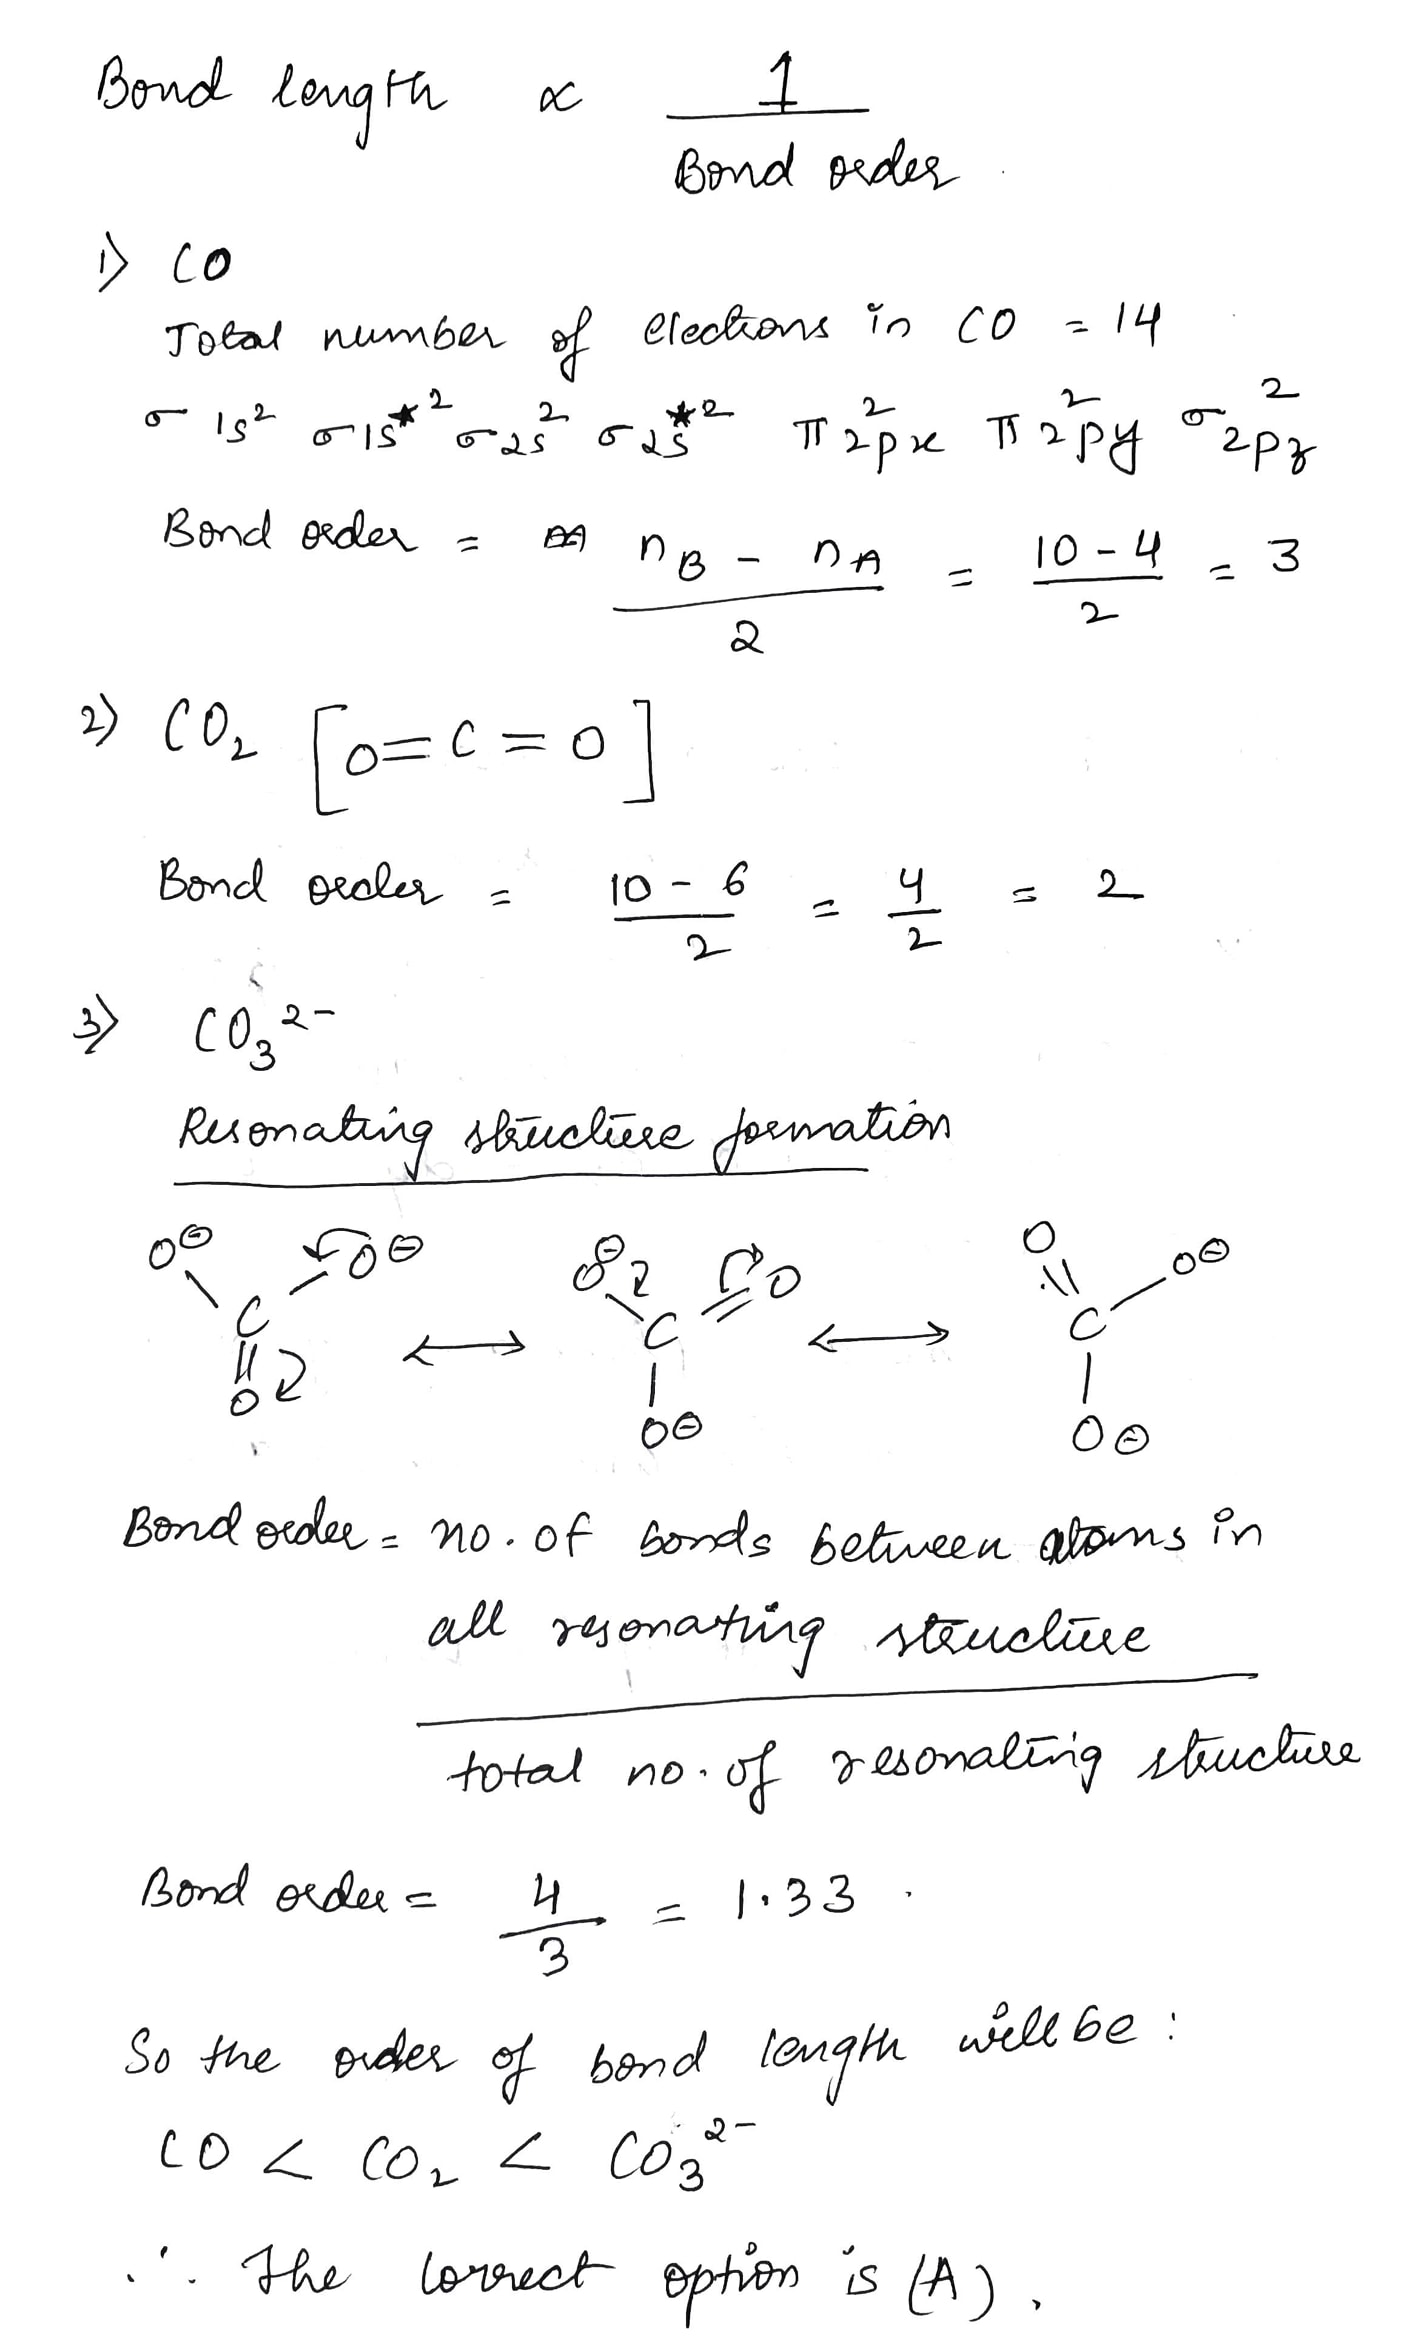 Bond length ∝ 1
Bond order
1) CO
Total number of electrons in CO = 14
σ 1s² σ1s*² σ2s² σ2s*² π2px² π2py² σ2pz²
Bond order = nB - nA / 2 = 10 - 4 / 2 = 3
2) CO₂ [O=C=O]
Bond order = 10 - 6 / 2 = 4 / 2 = 2
3) CO₃²⁻
Resonating structure formation
O⊖ O⊖ O⊖ O O O⊖
C ↔ C ↔ C
O O⊖ O⊖
Bond order = no. of bonds between atoms in
all resonating structure
total no. of resonating structure
Bond order = 4 / 3 = 1.33
So the order of bond length will be :
CO < CO₂ < CO₃²⁻
∴ The correct option is (A).